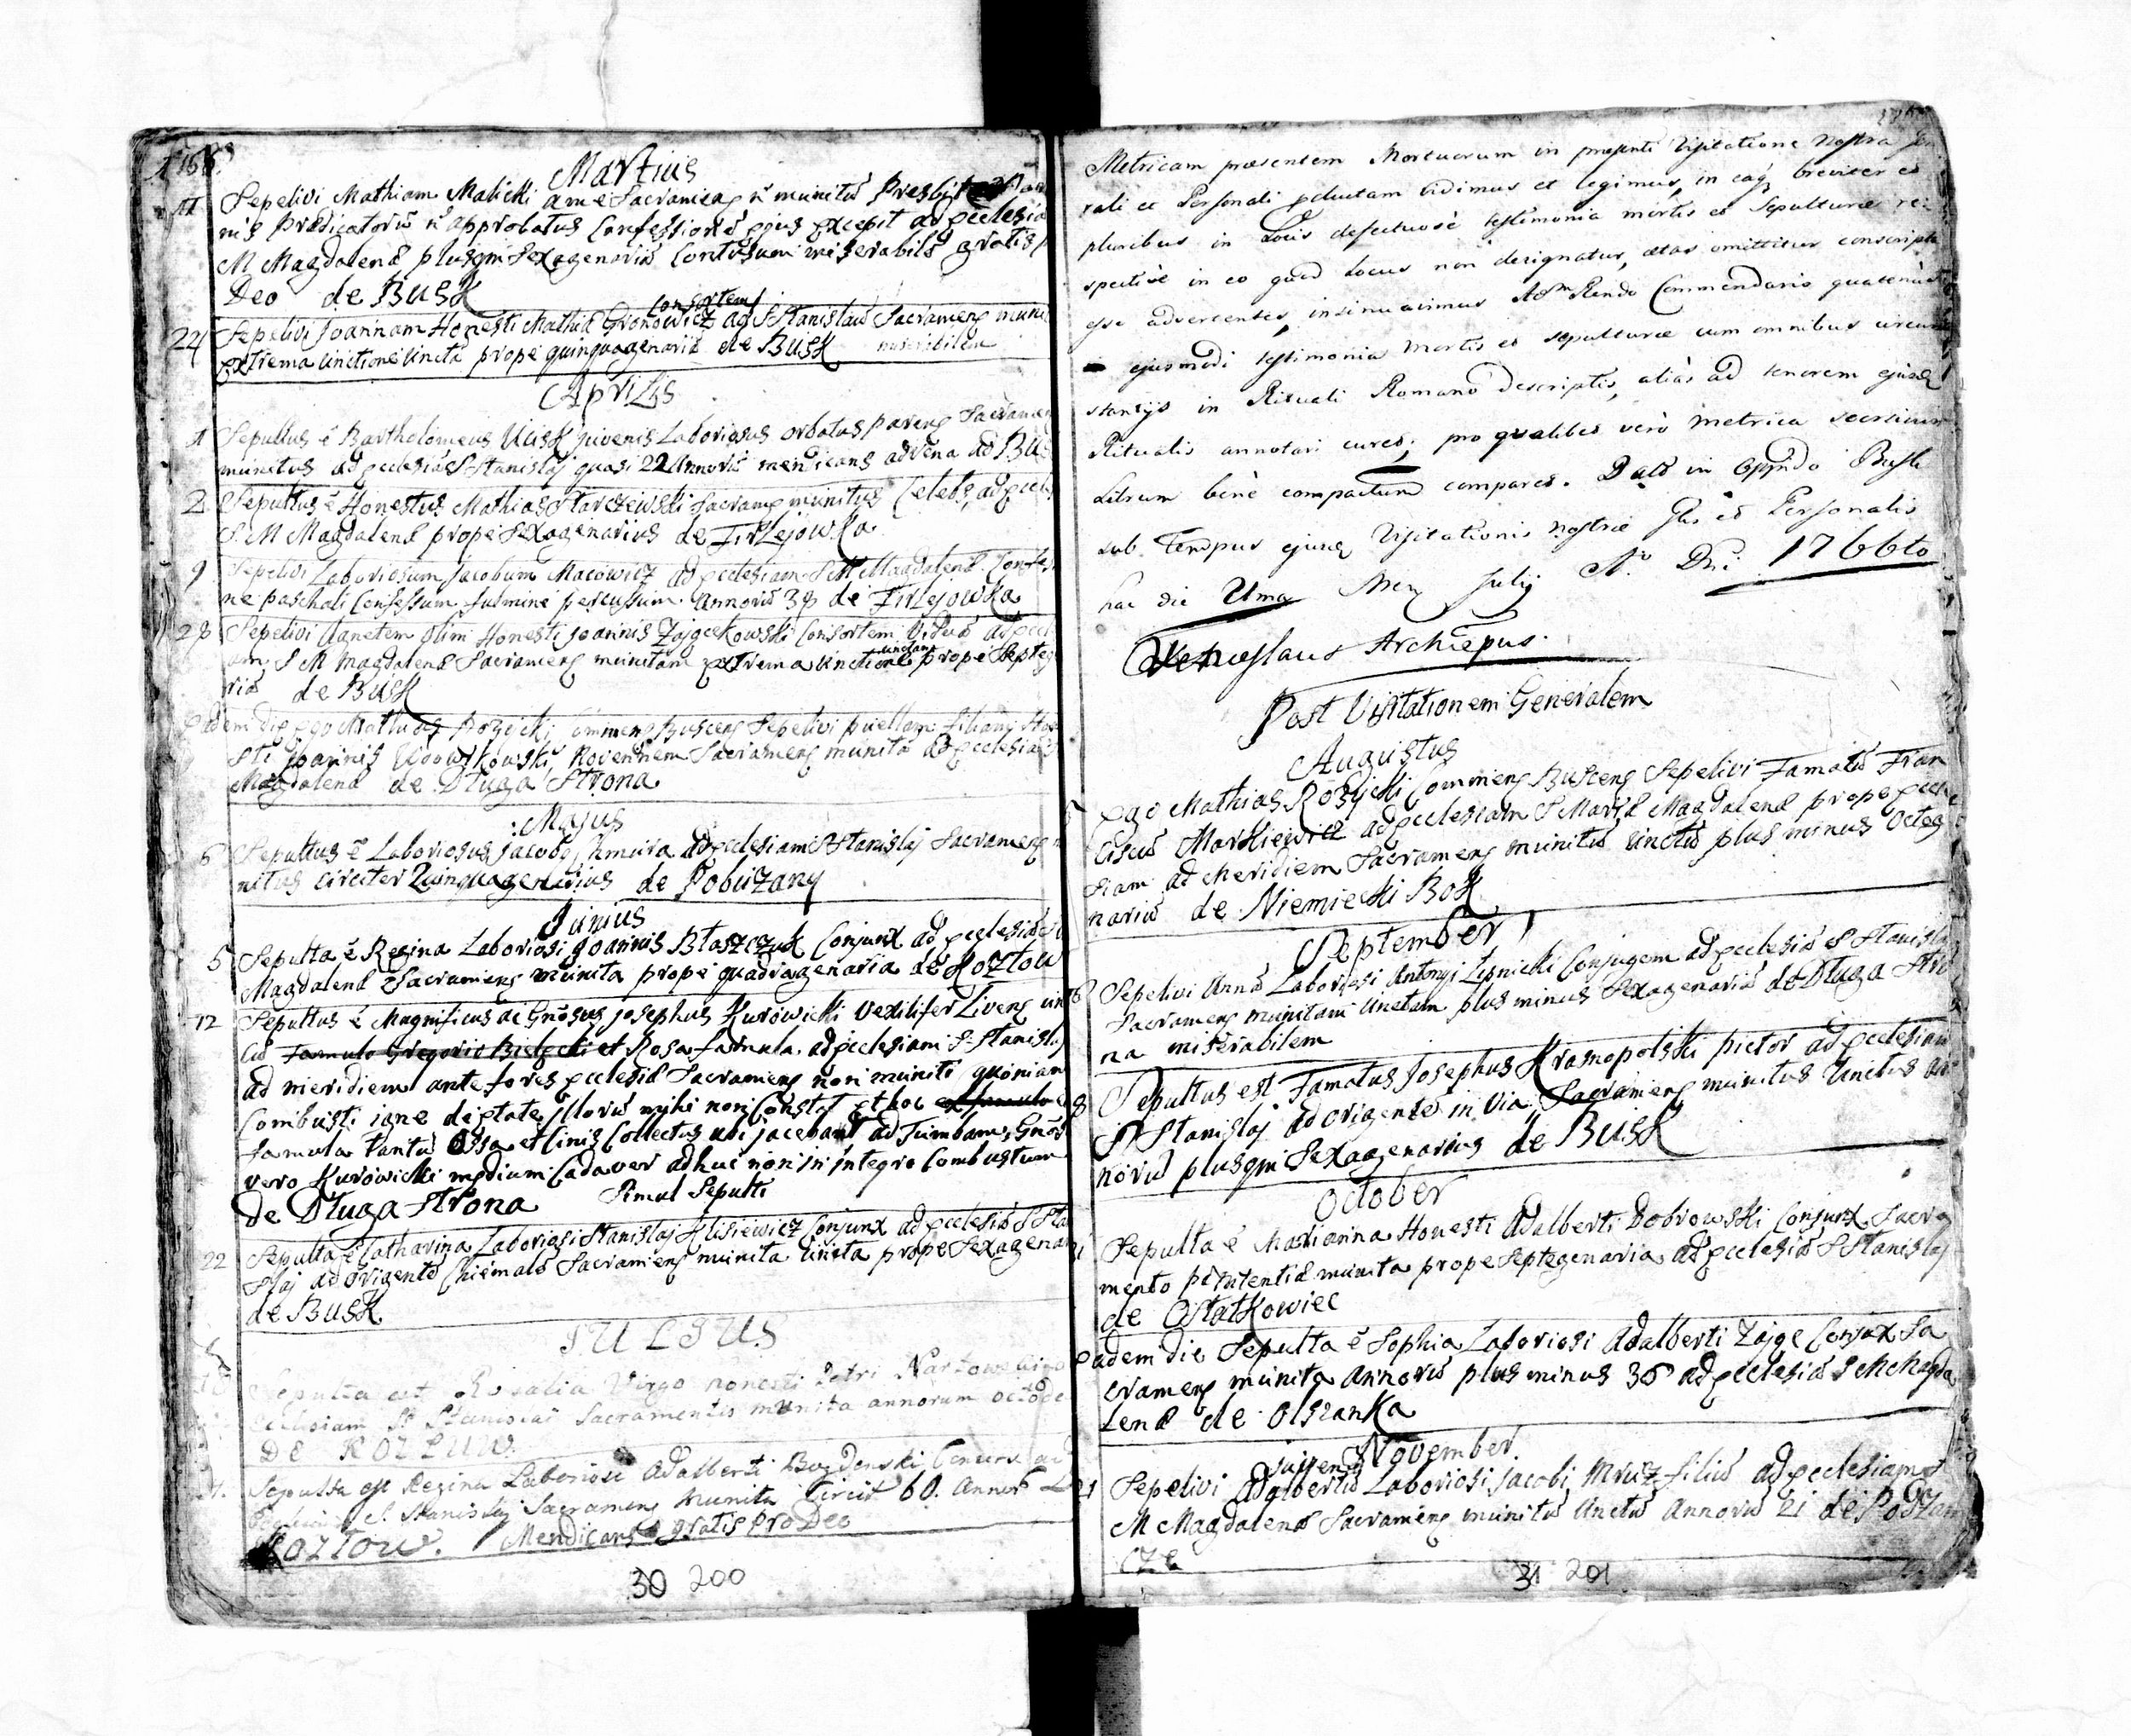 1766
Martius
11 Sepelivi Mathiam Malicki a me Sacramens n munitū Presbiter
nis Prædicatorū n approbatus Confessionē ejus excepit ad Ecclesia
M Magdalenæ plusqm Sexagenariū Contusum miserabilē gratis p
Deo de Busk
consortem
24 Sepelivi Joannam Honesti Mathiæ Gronowicz ad S Stanislaū Sacramens muni
extrema Unctione Unctā prope quinquagenariā de Busk miserabilem
Aprilis
1 Sepultus ē Bartholomeus Ucisk juvenis Laboriosus orbatus parens Sacramen
munitus ad Ecclesiā S Stanislaj quasi 22 Annorū mendicans advena ad Bus
2 Sepultus ē Honestus Mathias Starczewski Sacrams munitus Celebs, ad Eccle
S. M Magdalenæ prope Sexagenarius de Firlejowka
9 Sepelivi Laboriosum Jacobum Macowicz ad Ecclesiam S M Magdalenæ Confes
ne paschali Confessum fulmine percussum Annorū 38 de Firlejowka
28 Sepelivi Agnetem olim Honesti Joannis Zajączkowski Consortem Viduā ad Eccl
am S M Magdalenæ Sacramens munitam extrema Unctione unctam prope Septeg
riā de Busk
Eadem die Ego Mathias Rozycki Commens Buscens Sepelivi puellam filiam Hon
sti Joannis Kdowskowski, Sacramens munitā ad Ecclesiā
Magdalenæ de Długa Strona
Majus
6 Sepultus ē Laboriosus Jacobs Kmura ad Ecclesiam S Stanislaj Sacramens m
nitus circiter Quinquagenarius de Pobużany
Junius
5 Sepulta ē Regina Laboriosi Joannis Błaszczuk Conjunx ad Ecclesiā
Magdalenæ Sacramens munita prope quadragenaria de Kozłow
12 Sepultus ē Magnificus ac Gnosus Josephus Kurowicki Vexilifer Livens un
cū Famulo Gregorio Bielecki et Rosa famula ad Ecclesiam S Stanislaj
ad meridiem ante fores Ecclesiæ Sacramens non muniti quoniam
Combusti igne de ætate illorū mihi non Constat et hoc ex famulo
famula tantū Ossa et Cinis Collectus ubi jacebant ad Tumbam, Gnos
vero Kurowicki medium Cadaver adhuc non in integro Combustum
de Długa Strona Simul Sepulti
22 Sepulta ē Catharina Laboriosi Stanislaj Hlisiewicz Conjunx ad Ecclesiā S Sta
slaj ad Origentē Chiemalē Sacramens munita Uncta prope Sexagenari
de Busk
JULIUS
Sepulta est Rosalia Virgo honesti Petri
Ecclesiam S Stanislai Sacramentis munita annorum octode
DE KOZŁUW.
Sepulta est Regina Laboriosi Adalberti Bogdenski
S. Stanislaj Sacramens munita Circit 60. Annor
Kozłow. Mendicans gratis pro Deo
30 200
Metricam præsentem Mortuorum in præsenti Visitatione Nostra Gen
rali et Personali pductam vidimus et legimus, in eaq breviter et
pluribus in Locis defectuosè testimonia mortis et Sepulturæ re
spectivè in eo quod locus non designatur, ætas omittitur conscripta
esse advertentes, insinuavimus Adm Rendo Commendario quatenus
ejusmodi testimonia Mortis et sepulturæ cum omnibus circum
stantijs in Rituali Romano descriptis, aliàs ad tenorem ejusdē
Ritualis annotari curet; pro qualibet verò metrica seorsivum
Librum benè compactum comparet. Datt in Oppido Buski
sub tempus ejusdē Visitationis nostræ Glis et Personalis
hac die Uma Mens Julij Ao Dni 1766to
Venceslaus Archiepus
Post Visitationem Generalem
Augustus
Ego Mathias Rozycki Commens Buscens Sepelivi Famatū Fran
ciscū Markiewicz ad Ecclesiam S Mariæ Magdalenæ prope Eccle
siam ad Meridiem Sacramens munitū Unctū plus minus Octog
nariū de Niemiecki Bok
September
Sepelivi Annā Laboriosi Antonij Lipnicki Conjugem ad Ecclesiā S Stanisla
Sacramens munitam Unctam plus minus Sexagenariā de Długa Stro
na miserabilem
8 Sepultus est Famatus Josephus Kramopolski pictor ad Ecclesiam
S Stanislaj ad origentē in via, Sacramens munitus Unctus an
norū plusqm Sexagenarius de Busk
October
Sepulta ē Marianna Honesti Adalberti Dobrowski Conjunx Sacra
mento pœnitentiæ munita prope Septegenaria ad Ecclesiā S Stanislaj
de Ostatkowiec
Eadem die Sepulta ē Sophia Laboriosi Adalberti Zajge Conjux Sa
cramens munita annorū plus minus 36 ad Ecclesiā S M Magda
lenæ de Olszanka
November
juvenē
21 Sepelivi Adalbertū Laboriosi Jacobi Mruz filiū ad Ecclesiam S
M Magdalenæ Sacramens munitū Unctū Annorū 21 de Podzam
cze
31 201